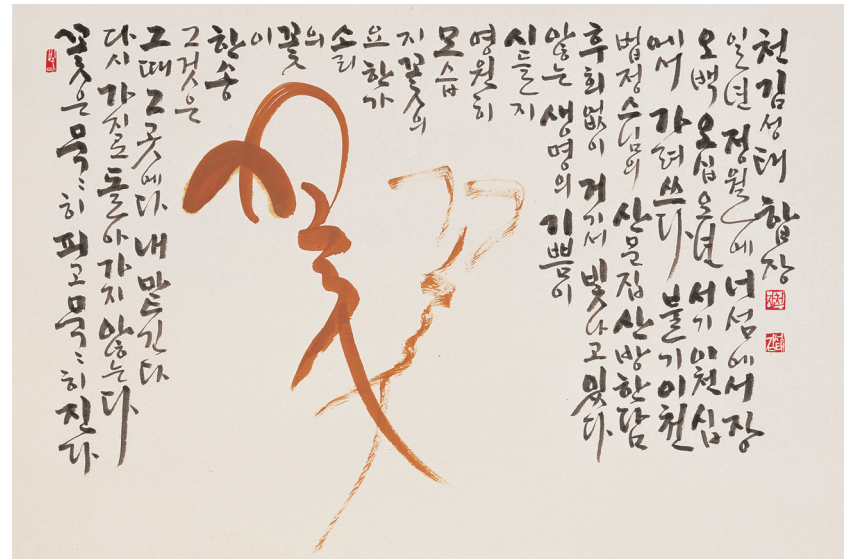 꽃은 묵〻히 피고 묵〻히 진다
다시 가지로 돌아가지 않는다
그때 그곳에다 내맡긴다
그것은
한송
이
꽃의
소리
요 한가
지 꽃의
모습
영원히
시들지
않는 생명의 기쁨이
후회없이 거기서 빛나고 있다
법정스님의 산문집 산방한담
에서 가려쓰다 불기이천
오백오십오년 서기이천십
일년 정월에 너섬에서 장
천 김성태 합장
꽃